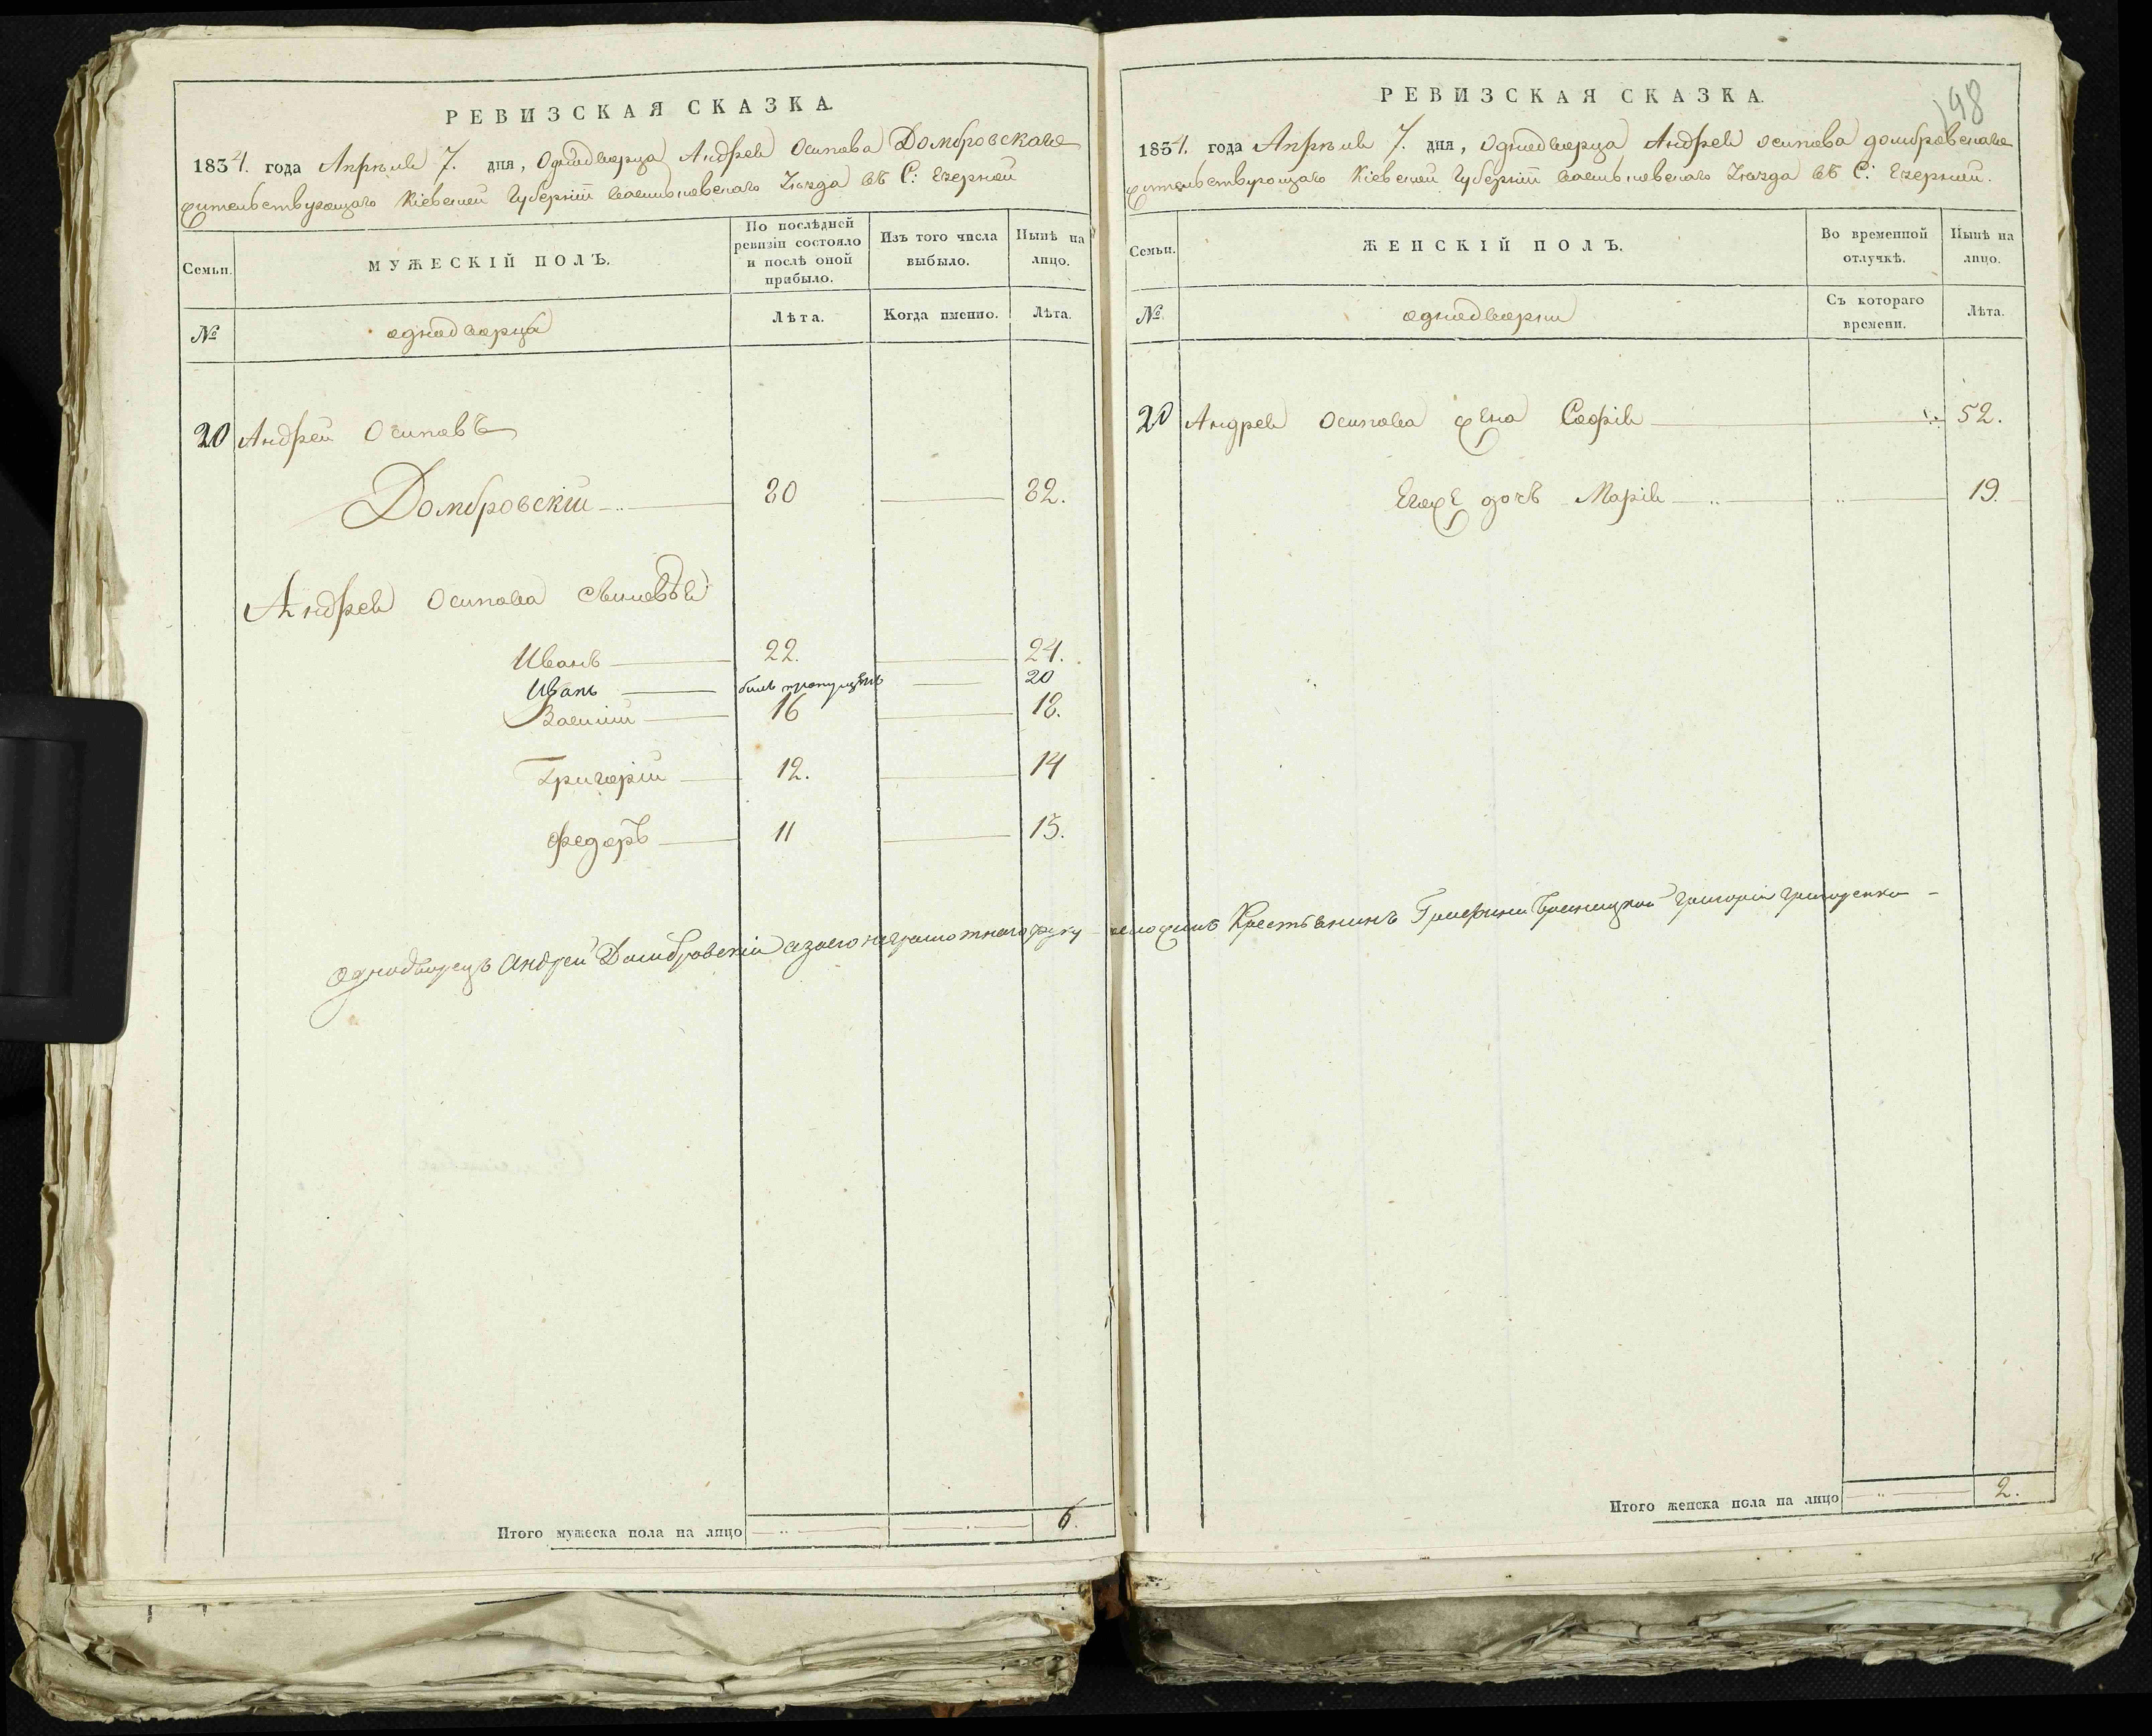 РЕВИЗСКАЯ СКАЗКА.
1834. года Апрѣля 7. дня, Однодворца Андрея Осипова Домбровскаго
жительствующаго Кіевской Губерніи Васильковскаго Уѣзда въ С: Езерной
Семьи.
МУЖЕСКІЙ ПОЛЪ.
По послѣдней ревизіи состояло и послѣ оной прибыло.
Изъ того числа выбыло.
Нынѣ на лицо.
№
однодворцы
Лѣта.
Когда именно.
Лѣта.
20 Андрей Осиповъ
Домбровскій 80 82.
Андрея Осипова сыновья
Иванъ 22. 24.
Иванъ былъ пропущенъ 20
Василій 16 18.
Григорій 12. 14
Федоръ 11 13.
Однодворецъ Андрей Домбровскій а за его неграмотнаго руку приложилъ Крестьянинъ Графини Браницкой Григорій Григоренко
Итого мужеска пола на лицо 6.
198
РЕВИЗСКАЯ СКАЗКА.
1834. года Апрѣля 7. дня, Однодворца Андрея Осипова Домбровскаго
жительствующаго Кіевской Губерніи Васильковскаго Уѣзда въ С: Езерной.
Семьи.
ЖЕНСКІЙ ПОЛЪ.
Во временной отлучкѣ.
Нынѣ на лицо.
№
однодворки
Съ котораго времени.
Лѣта.
20 Андрея Осипова жена Софія 52.
Егоже дочь Марія 19.
Итого женска пола на лицо 2.